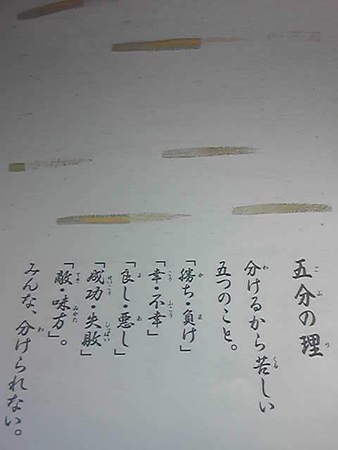 五分の理
分けるから苦しい
五つのこと。
「勝ち・負け」
「幸・不幸」
「良し・悪し」
「成功・失敗」
「敵・味方」。
みんな、分けられない。